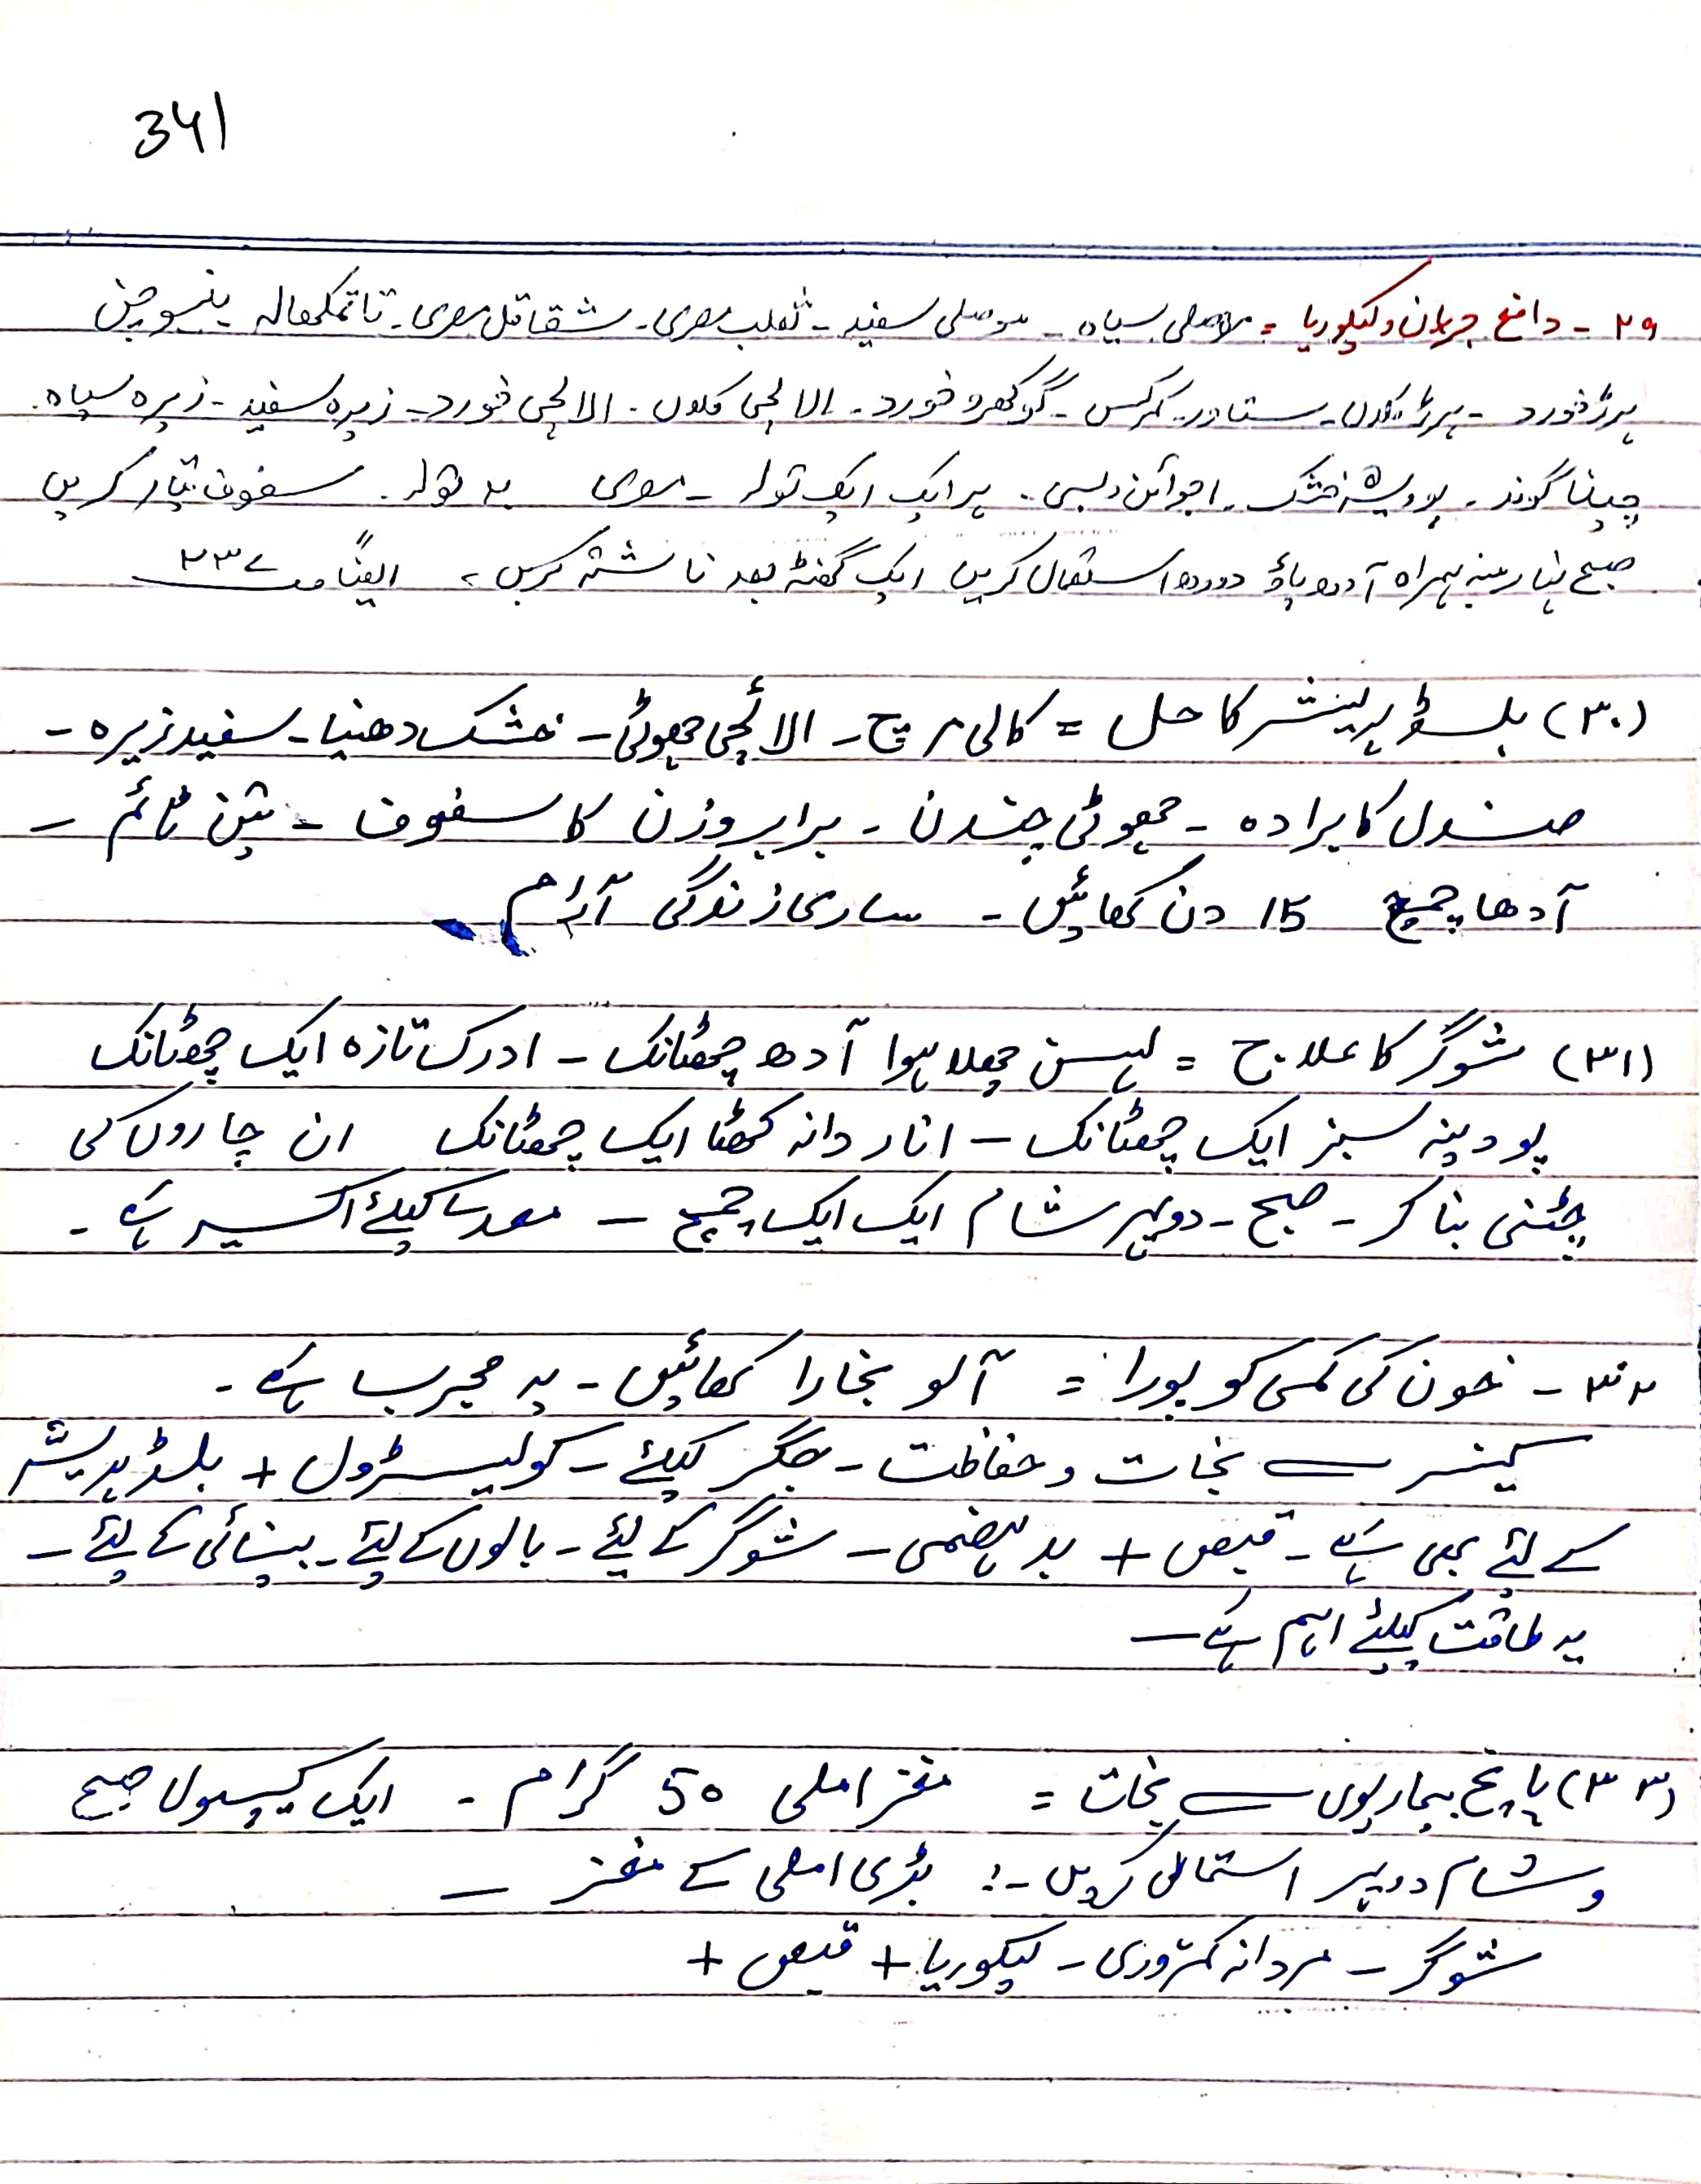 341
۲۹ - دافع جریان و لیکوریا = موصلی سیاہ - موصلی سفید - ثعلب مصری - شقاقل مصری - تالمکھانہ
ہرڑ خورد - ہرڑ کلاں - ستاور - کمرکس - گوکھرو خورد - الائچی کلاں - الائچی خورد - زیرہ سفید - زیرہ سیاہ -
چینا گوند - خشک - اجوائن دیسی - ہر ایک ایک تولہ - مصری تولہ - سفوف تیار کریں
صبح نہار منہ ہمراہ آدھ پاؤ دودھ استعمال کریں ایک گھنٹہ بعد ناشتہ کریں ، ایضاً ص ۲۳۷
(۳۰) بلڈ پریشر کا حل = کالی مرچ - الائچی چھوٹی - خشک دھنیا - سفید زیرہ -
صندل کا برادہ - چھوٹی چندن - برابر وزن کا سفوف - تین ٹائم -
آدھا چمچ 15 دن کھائیں - ساری زندگی آرام
(۳۱) شوگر کا علاج = لہسن چھلا ہوا آدھ چھٹانک - ادرک تازہ ایک چھٹانک
پودینہ سبز ایک چھٹانک - انار دانہ کھٹا ایک چھٹانک ان چاروں کی
چٹنی بنا کر - صبح - دوپہر شام ایک ایک چمچ - معدے کیلئے اکسیر ہے -
۳۲ - خون کی کمی کو پورا = آلو بخارا کھائیں - یہ مجرب ہے -
کینسر سے نجات و حفاظت - جگر کیلئے - کولیسٹرول + بلڈ پریشر
کے لئے بھی ہے - قبض + بد ہضمی - شوگر کے لئے - بالوں کے لئے - بینائی کے لئے -
یہ طاقت کیلئے اہم ہے -
(۳۳) پانچ بیماریوں سے نجات = مغز املی 50 گرام - ایک کیپسول صبح
و شام دوپہر استعمال کریں -: بڑی املی کے مغز -
شوگر - مردانہ کمزوری - لیکوریا + قبض +